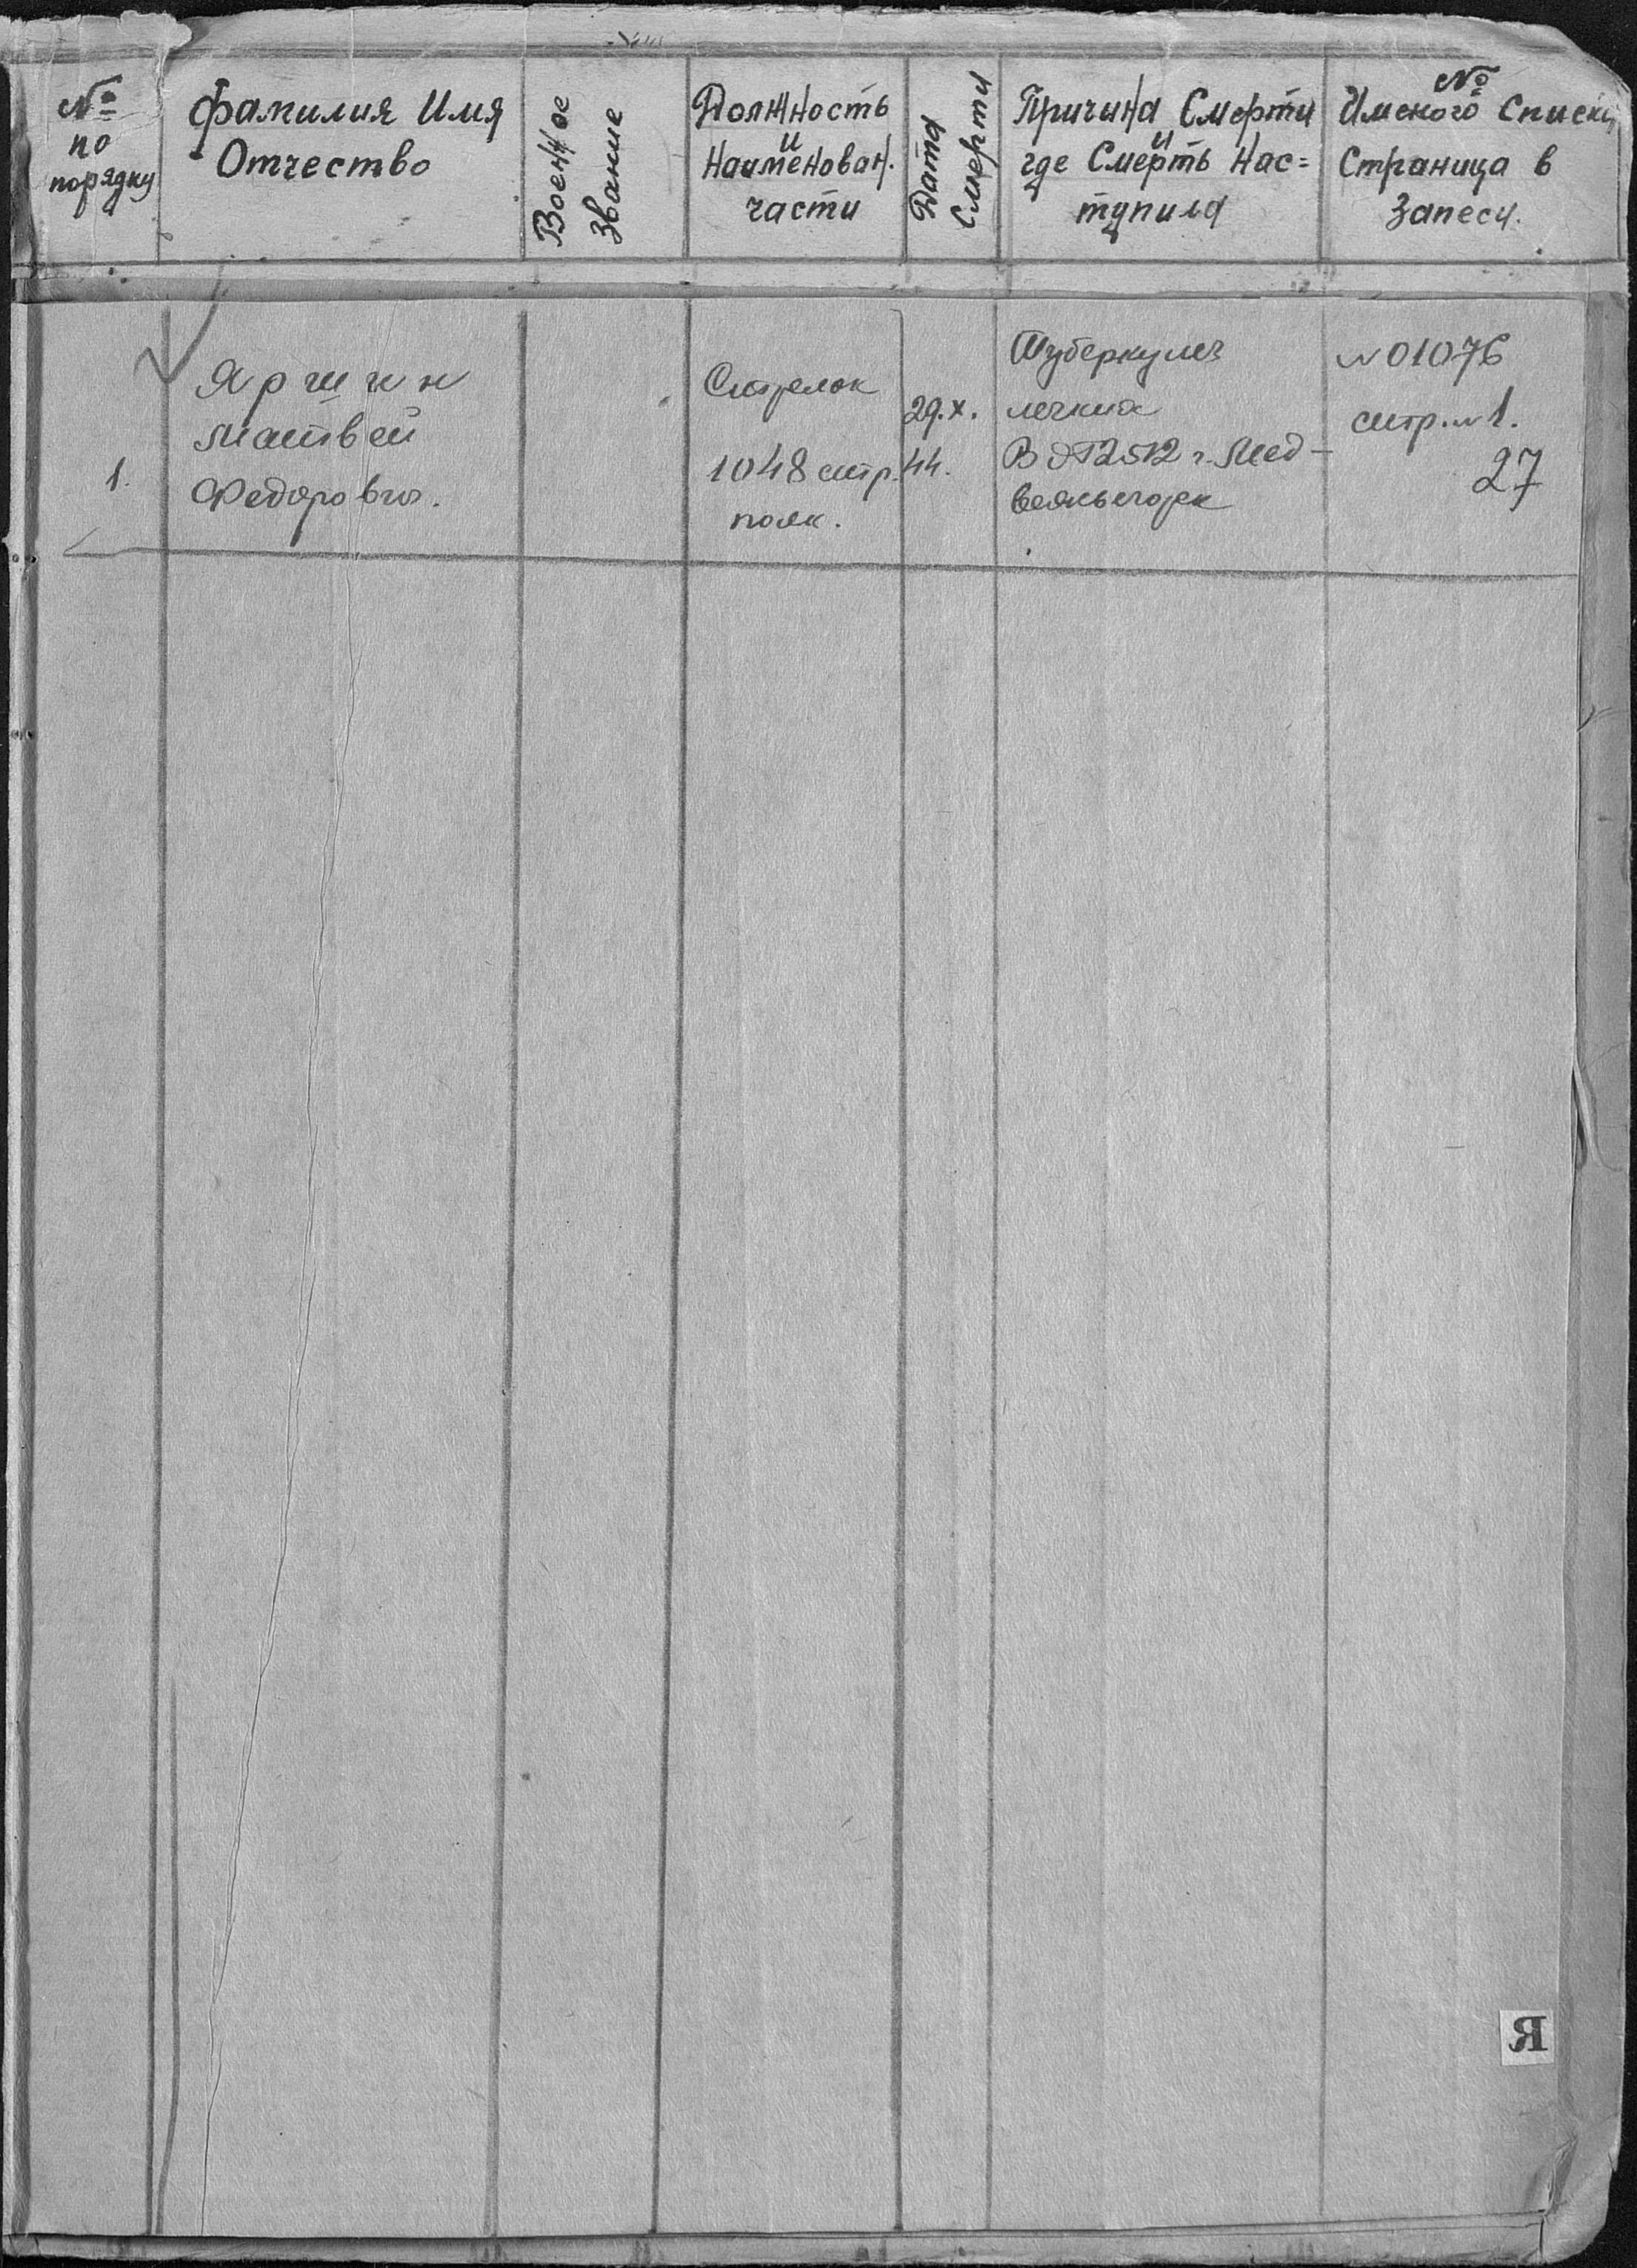 №
по
порядку
Фамилия Имя
Отчество
Военное
Звание
Должность
и
Наименован.
части
Дата
Смерти
Причина Смерти
и
где Смерть Нас=
тупила
№
Именого Списка
Страница в
Запеси.
1.
Яршин
Матвей
Федорович.
Стрелок
1048 стр.
полк.
29.X.
44.
Туберкулез
легких
В ЭГ2512 г. Мед-
вежьегорск
№01076
стр. №1.
27
Я